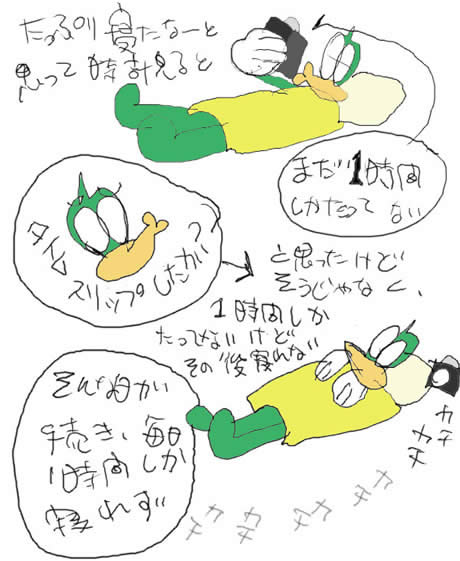 たっぷり寝たなーと
思って時計見ると
まだ1時間
しかたってない
タイム
スリップしたか?
と思ったけど
そうじゃなく、
1時間しか
たってないけど
その後寝れない
カチ
カチ
そんな日が
続き、毎日
1時間しか
寝れず
カチ
カチ
カチ
カチ